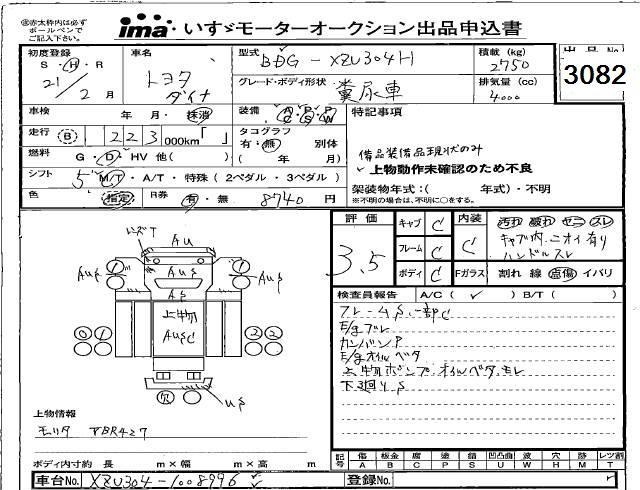 ㊟赤太枠内は必ず
ボールペンで
ご記入下さい。
ima いすゞモーターオークション出品申込書
初度登録 車名 型式 積載 (kg) 出品No
S・H・R トヨタ BDG-XZU304H 2750 3082
21/2月 ダイナ グレード・ボディ形状 糞尿車 排気量 (cc)
4000
車検 年 月・抹消 装備 特記事項
走行 B 223 000km「 」 タコグラフ
有・無 別体
燃料 G・D・HV 他( ) ( 年 月) 備品装備品現状のみ
シフト 5 MT・A/T・特殊 (2ペダル・3ペダル) 上物動作未確認のため不良
色 指定 R券 有・無 8740 円 架装物年式:( 年式)・不明
※不明の場合は、不明に○をする。
評価 キャブ C 内装 汚れ 破れ ヤニ スレ
3.5 フレーム C C キャブ内ニオイ有り
ハンドルスレ
ボディ C Fガラス 割れ 線 点傷 イバリ
検査員報告 A/C ( ✓ ) B/T ( )
フレームS、一部C
E/gブレ
カンバンP
E/gオイルベタ
上物ポンプオイルベタ、モレ
下廻りS
AU
AUS
AS
上物
AUSC
US
上物情報
モリタ
ボディ内寸約 長 m×幅 m×高 m
記号 傷 板金 腐 塗 錆 凹凸曲 波 穴 跡 レツ割
A B C P S U W H M T
車台No. XZU304-1008996 登録No.